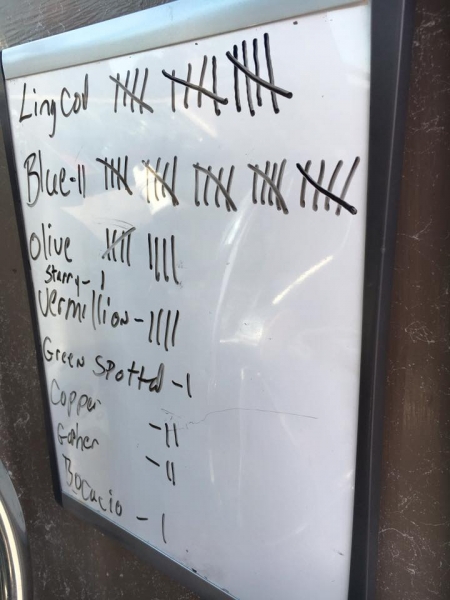 Ling Cod 卌 卌 卌
Blue-|| 卌 卌 卌 卌 卌
Olive 卌 ||||
Starry- |
Vermillion - ||||
Green Spotted - |
Copper - ||
Gopher - ||
Bocacio - |